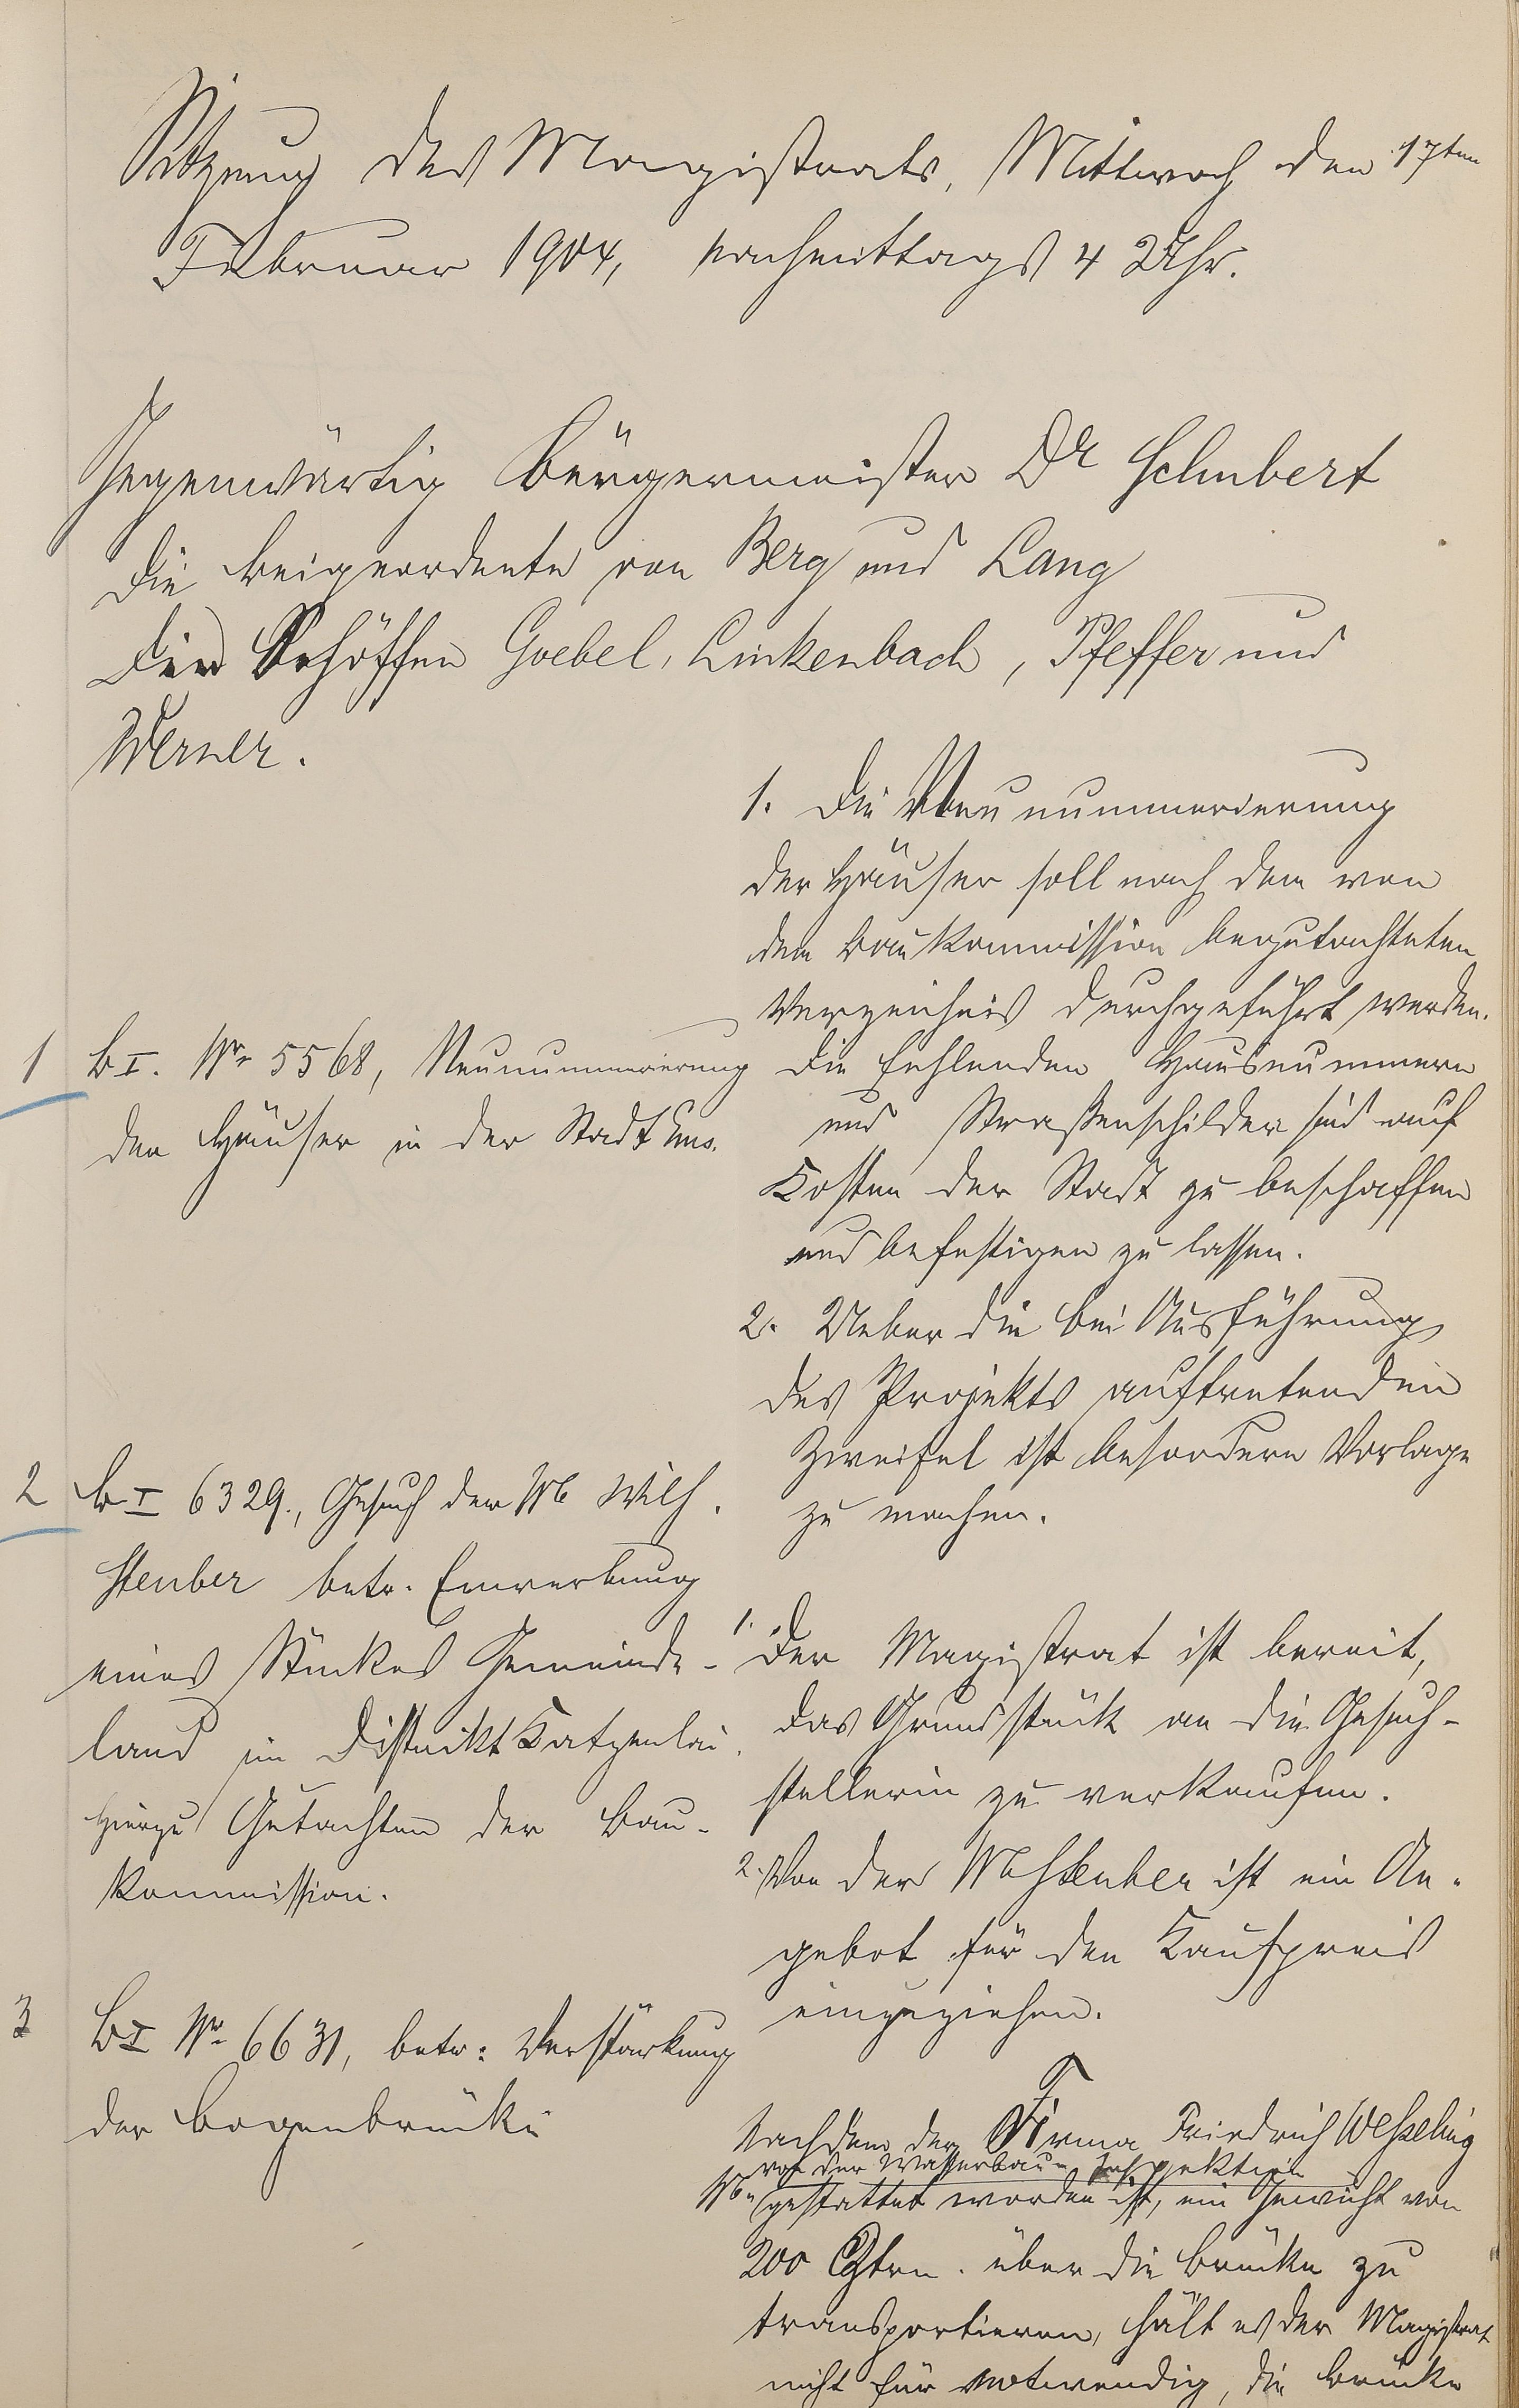 Sitzung des Magistrats, Mittwoch den 17ten
Februar 1904, nachmittags 4 Uhr.
Gegenwärtig Bürgermeister Dr Schubert
die Beigeordnete von Berg und Lang
die Schöffen Goebel, Linkenbach, Pfeffer und
Werner.
1
B I. Nr. 5568, Neunummerierung
der Häuser in der Stadt Ems.
1. Die Neunummerierung
der Häuser soll nach dem von
der Baukommission begutachteten
Verzeichnis durchgeführt werden.
Die fehlenden Hausnummern
und Straßenschilder sind auf
Kosten der Stadt zu beschaffen
und befestigen zu lassen.
2. Ueber die bei Ausführung
des Projekts auftretenden
Zweifel ist besondere Vorlage
zu machen.
2
B I 6329., Gesuch der Wb Wilh.
Steuber betr. Erwerbung
eines Stückes Gemeinde-
land im Distrikt Katzenlai.
Hierzu Gutachten der Bau-
kommission.
1. Der Magistrat ist bereit,
das Grundstück an die Gesuch-
stellerin zu verkaufen.
2. Von der Wb Steuber ist ein An-
gebot für den Kaufpreis
einzuziehen.
3
B I Nr. 6631, betr: Verstärkung
der Bogenbrücke
Nachdem der Firma Friedrich Wesseling
von der Wasserbau-Inspektion
gestattet worden ist, ein Gewicht von
200 Ztrn. über die Brücke zu
transportieren, hält es der Magistrat
nicht für notwendig, die Brücke